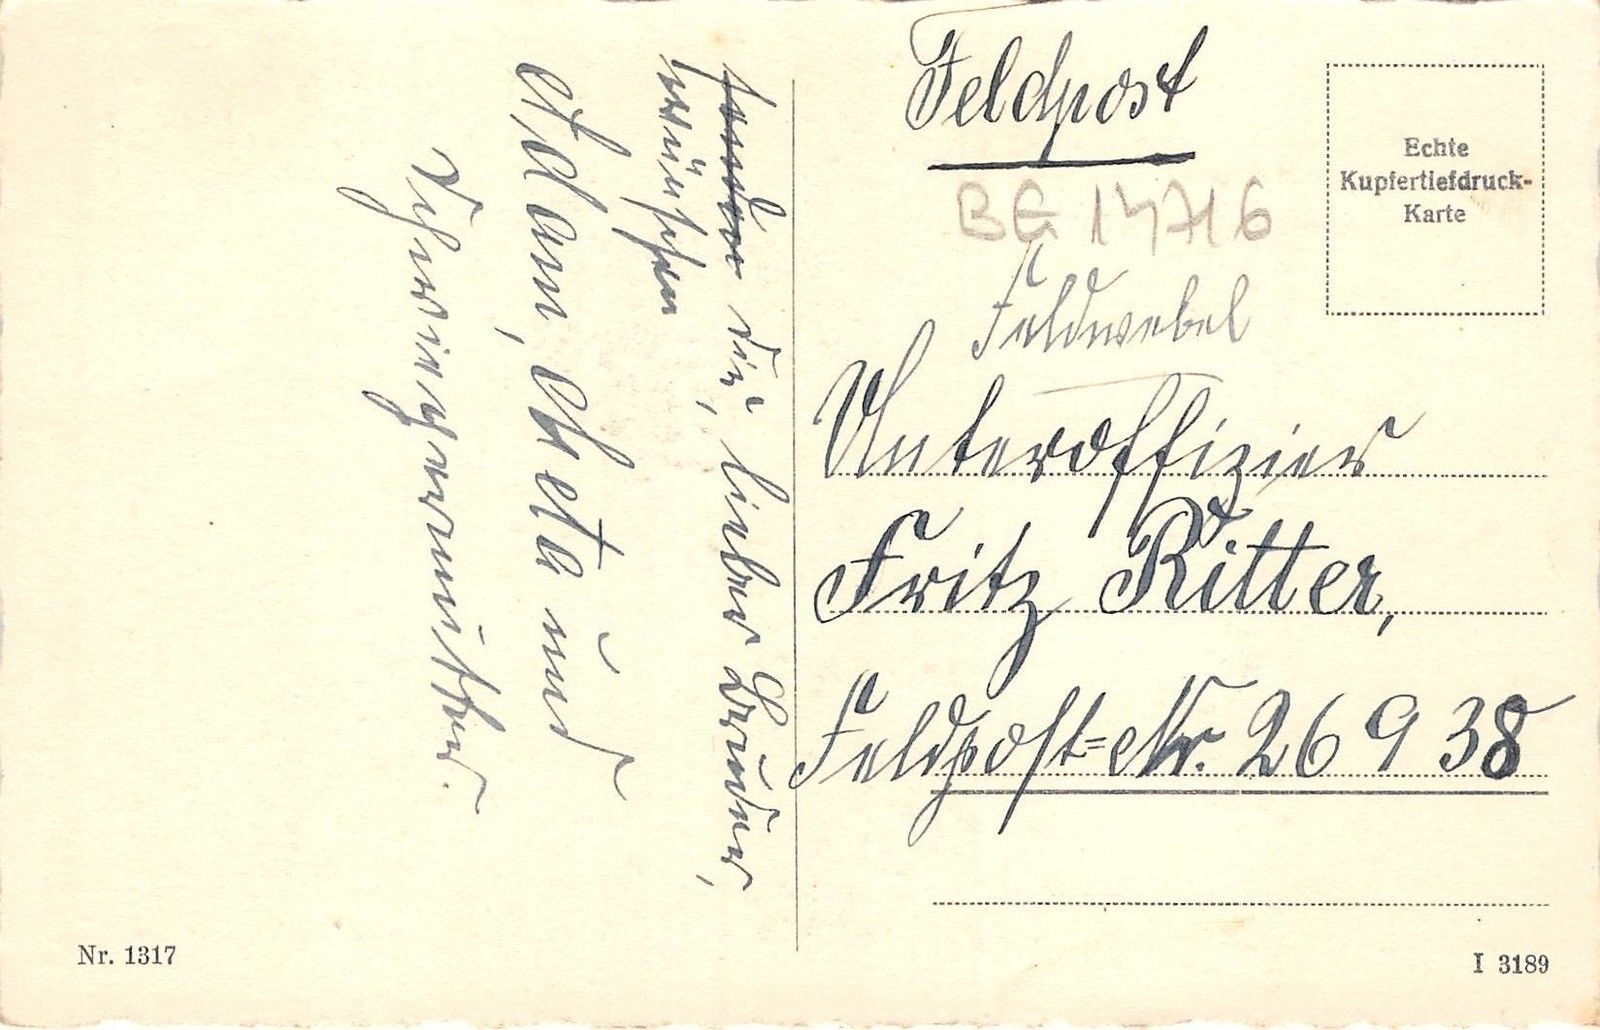 senden dir, lieber Bruder,
wünschen
Adam, Meta und
Schwiegermutter.
Feldpost
BG 14716
Feldwebel
Unteroffizier
Fritz Ritter,
Feldpost=Nr. 26938
Echte
Kupfertiefdruck-
Karte
Nr. 1317
I 3189